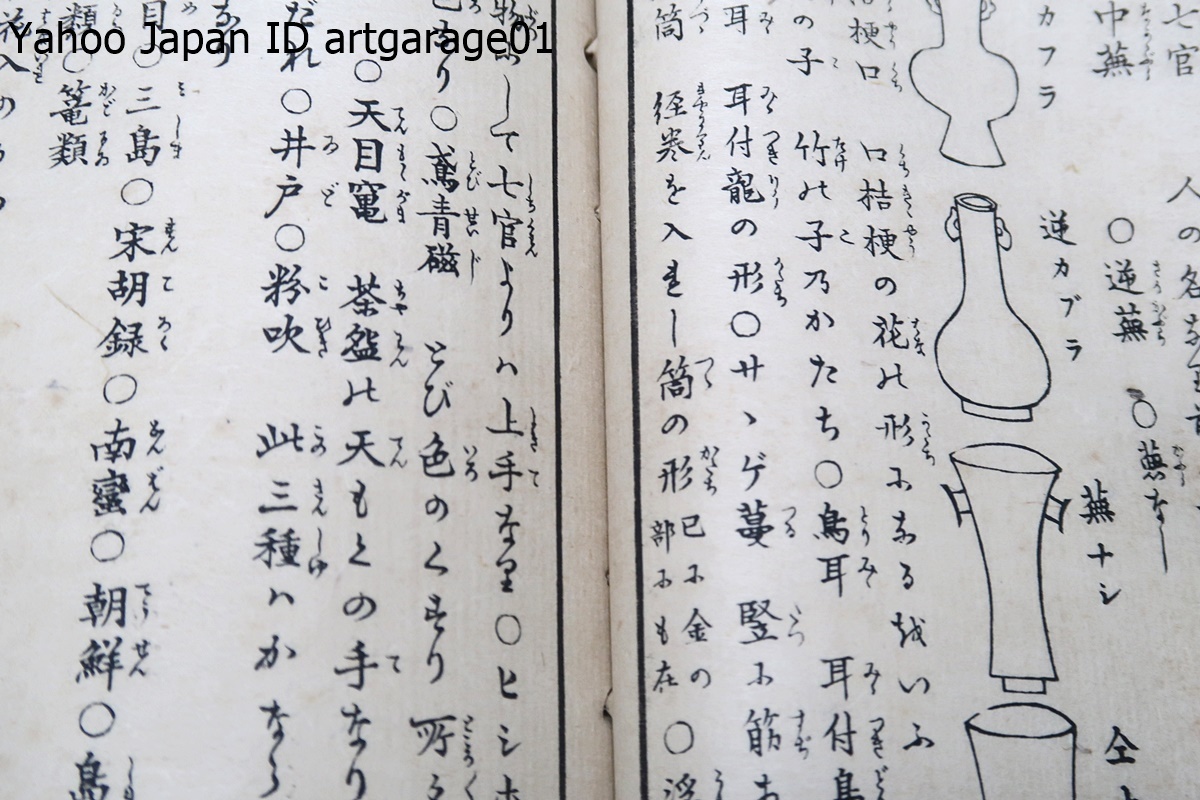 Yahoo Japan ID artgarage01
七官
人の名
中蕪
○逆蕪
○蕪なし
カフラ
逆カブラ
蕪ナシ
仝
桔梗口
口桔梗の花の形になる故いふ
の子
竹の子乃かたち○鳥耳
耳付鳥
耳
耳付龍の形○サヽゲ蔓
竪に筋
筒
径巻を入るゝ筒の形
已に金の
部にも在
○浮
して七官よりハ上手な里○ヒシホ
色なり○鳶青磁
とび色のくすり
所
○天目窯
茶盌の天もくの手なり
だれ○井戸○粉吹
此三種ハかなら
なり
目○三島○宋胡録○南蛮○朝鮮○島
類○篭類
花入の